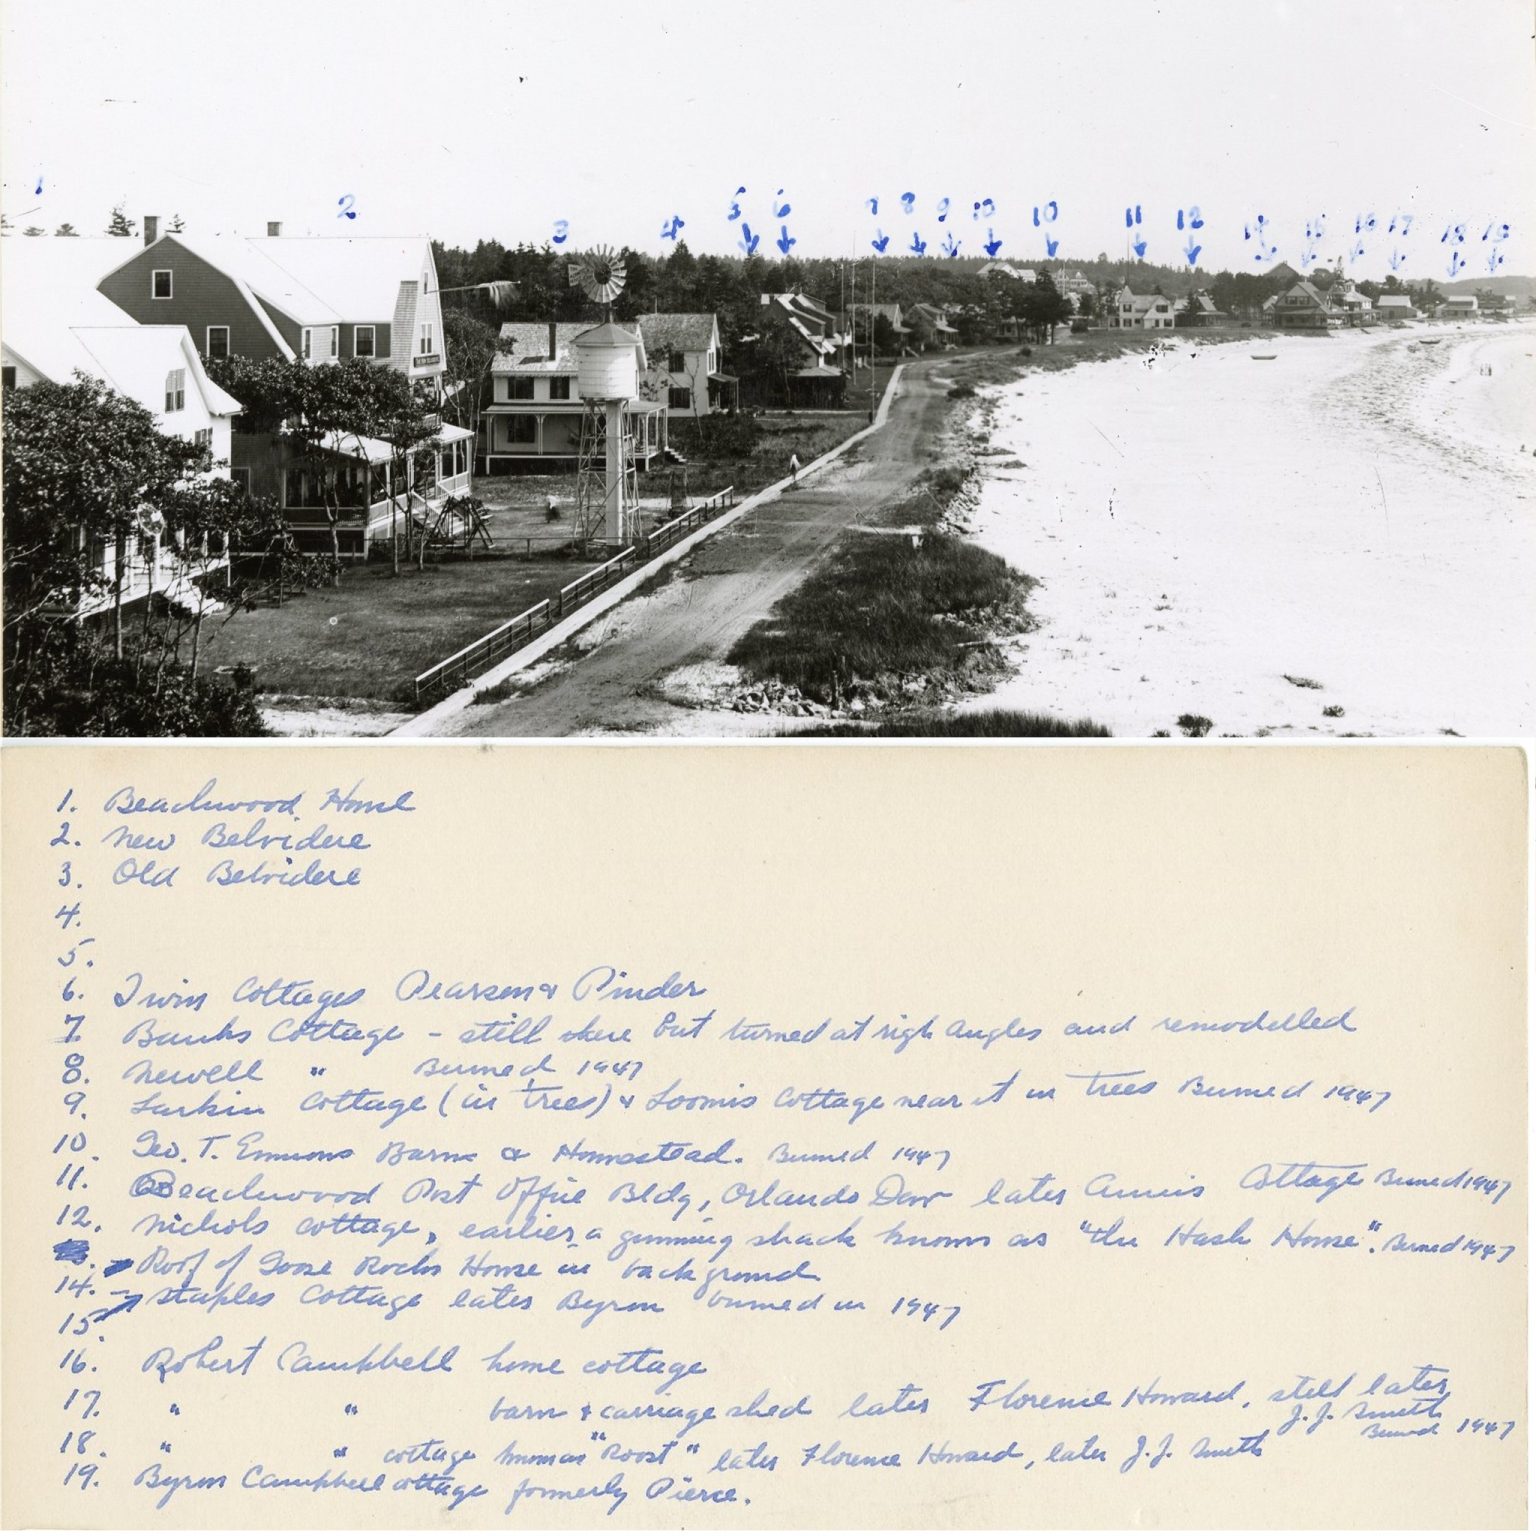 1 2 3 4 5 6 7 8 9 10 10 11 12 14 15 16 17 18 19
1. Beachwood House
2. New Belvidere
3. Old Belvidere
4.
5.
6. Twin Cottages Pearson & Pinder
7 Banks Cottage - still there but turned at righ angles and remodelled
8. Newell " Burned 1947
9. Larkin Cottage (in trees) & Loomis Cottage near it in trees Burned 1947
10. Geo. T. Emmons Barn & Homestead. Burned 1947
11. Beachwood Post Office Bldg, Orlando Dow later Annis Cottage Burned 1947
12. Nichols cottage, earlier a gunning shack known as "the Hash House". Burned 1947
Roof of Goose Rocks House in background
14. - Staples Cottage later Byron burned in 1947
15.
16. Robert Campbell home cottage
17. " " barn & carriage shed later Florence Howard, still later J.J. Smith Burned 1947
18. " " cottage known as "Roost" later Florence Howard, later J.J. Smith
19. Byron Campbell cottage formerly Pierce.